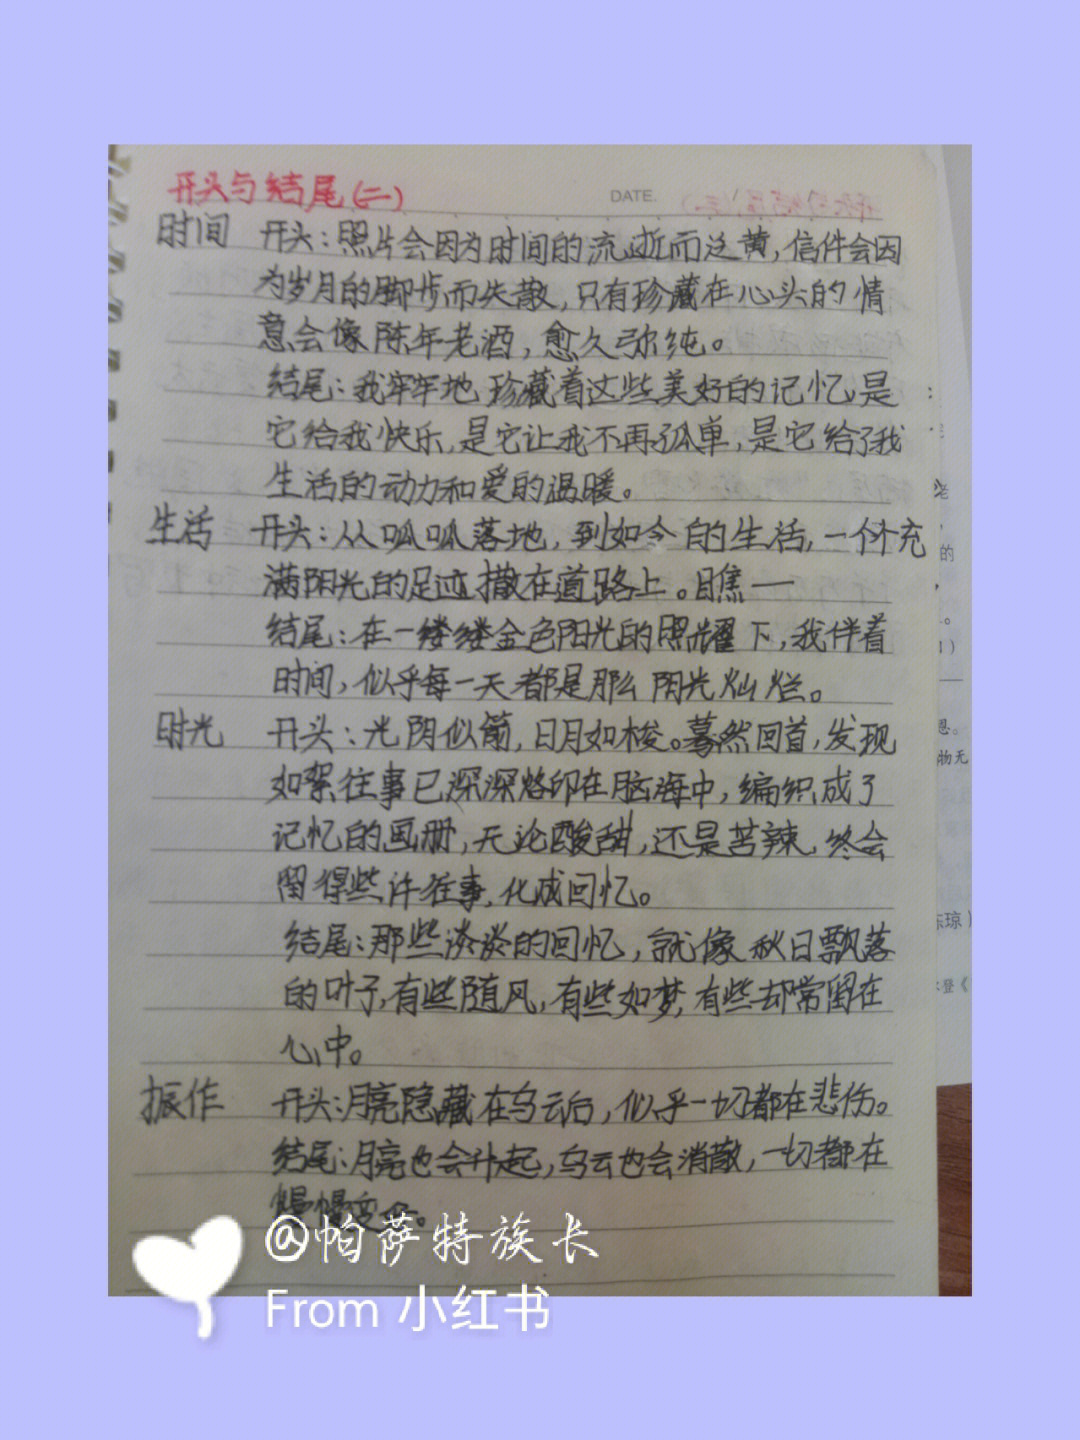 开头与结尾(二)
DATE.
时间 开头：照片会因为时间的流逝而泛黄，信件会因
为岁月的脚步而失散，只有珍藏在心头的情
意会像陈年老酒，愈久弥纯。
结尾：我牢牢地珍藏着这些美好的记忆，是
它给我快乐，是它让我不再孤单，是它给了我
生活的动力和爱的温暖。
生活 开头：从呱呱落地，到如今的生活，一个个充
满阳光的足迹撒在道路上。瞧——
结尾：在一缕缕金色阳光的照耀下，我伴着
时间，似乎每一天都是那么阳光灿烂。
时光 开头：光阴似箭，日月如梭。蓦然回首，发现
如絮往事已深深烙印在脑海中，编织成了
记忆的画册，无论酸甜，还是苦辣，终会
留得些许往事，化成回忆。
结尾：那些淡淡的回忆，就像秋日飘落
的叶子，有些随风，有些如梦，有些却常留在
心中。
振作 开头：月亮隐藏在乌云后，似乎一切都在悲伤。
结尾：月亮也会升起，乌云也会消散，一切都在
慢慢变
@帕萨特族长
From 小红书
老
的
恩。
物无
东琼）
登《